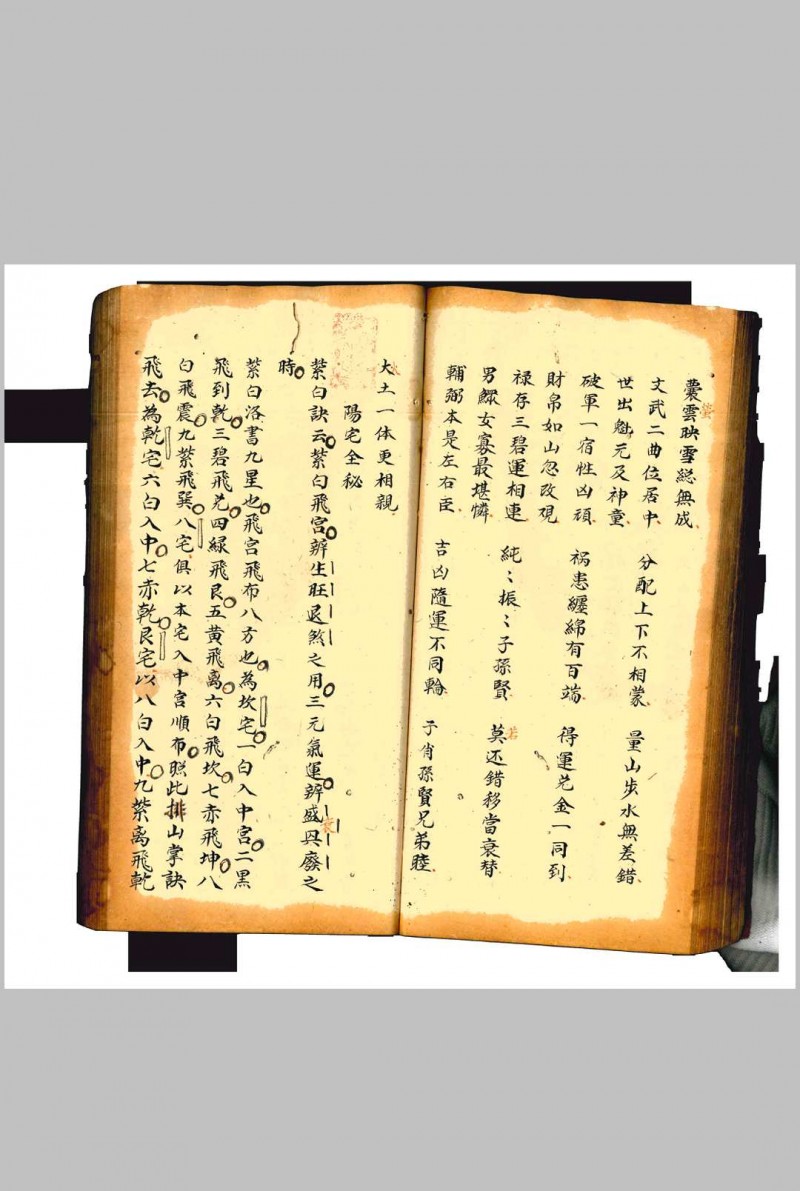 囊雲映雪総無成
螢
文武二曲位居中 分配上下不相蒙 量山步水無差錯
世出魁元及神童
破軍一宿性凶頑 祸患纏綿有百端 得運兑金一同到
財帛如山忽改規
禄存三碧運相連 純〻振〻子孫賢 莫还錯移當衰替
若
男鰥女寡最堪憐
輔弼本是左右臣 吉凶隨運不同輪 子肖孫賢兄弟睦
大土一体更相親
陽宅全秘
紫白訣云紫白飛宮辨生旺退煞之用三元氣運辨盛與廢之
衰
時
紫白洛書九星也飛宮飛布八方也為坎宅一白入中宮二黑
飛到乾三碧飛兑四緑飛艮五黄飛离六白飛坎七赤飛坤八
白飛震九紫飛巽八宅俱以本宅入中宮順布照此排山掌訣
飛去為乾宅六白入中七赤乾艮宅以八白入中九紫离飛乾